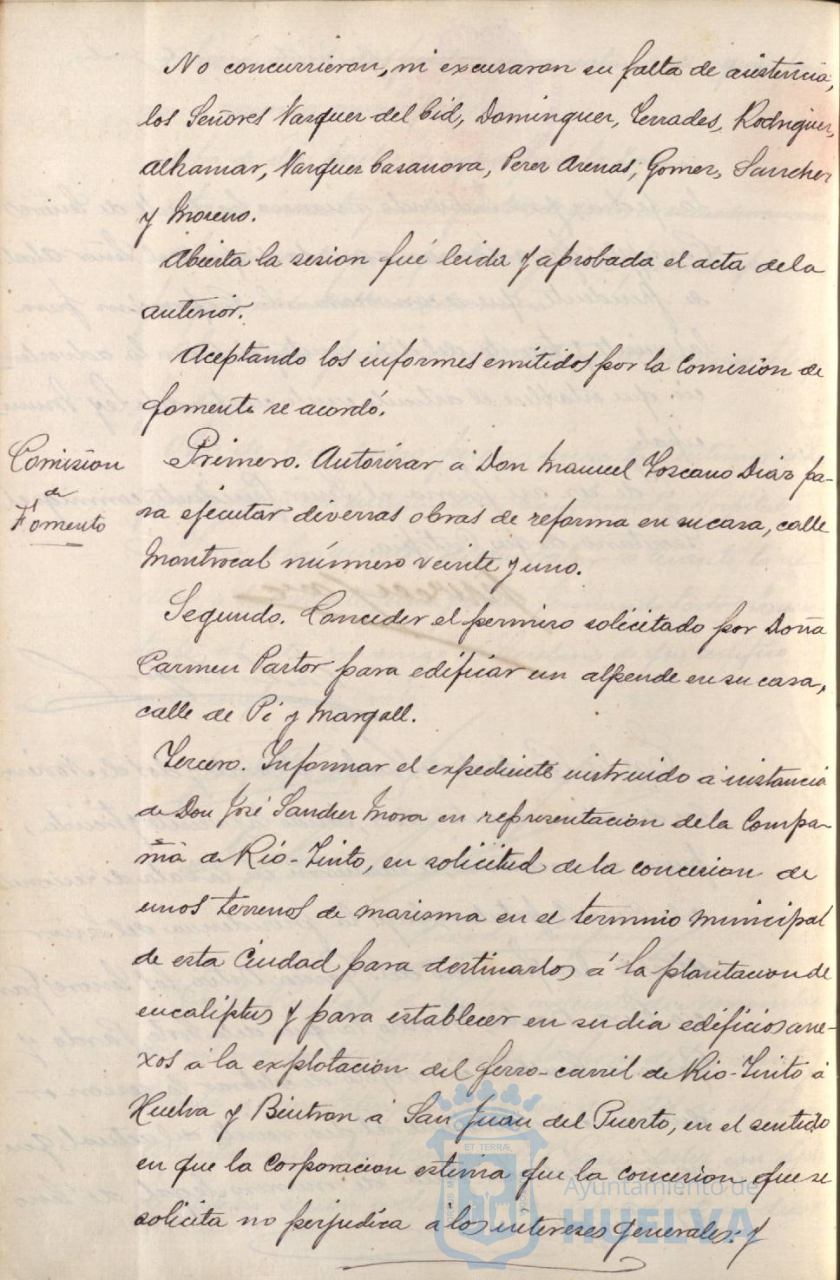 No concurrieron, ni excusaron su falta de asistencia,
los Señores Vazquez del Cid, Dominguez, Terrades, Rodriguez,
Alkamar, Vazquez Casanova, Perez Arenas, Gomez, Sanchez
y Moreno.
Abierta la sesion fué leida y aprobada el acta de la
anterior.
Aceptando los informes emitidos por la Comision de
fomento se acordó.
Comision
de
Fomento
Primero. Autorizar á Don Manuel Toscano Diaz pa-
ra ejecutar diversas obras de reforma en su casa, calle
Montrocal número veinte y uno.
Segundo. Conceder el permiso solicitado por Doña
Carmen Pastor para edificar un alpende en su casa,
calle de Pi y Margall.
Tercero. Informar el expediente instruido á instancia
de Don José Sanchez Mora en representacion de la Compa-
ñia de Rio-Tinto, en solicitud de la concesion de
unos terrenos de marisma en el termino municipal
de esta Ciudad para destinarlos á la plantacion de
eucaliptus y para establecer en su dia edificios ane-
xos á la explotacion del ferro-carril de Rio-Tinto á
Huelva y Buitron á San Juan del Puerto, en el sentido
en que la Corporacion estima que la concesion que se
solicita no perjudica á los intereses generales: y
ET TERRÆ
Ayuntamiento de
HUELVA